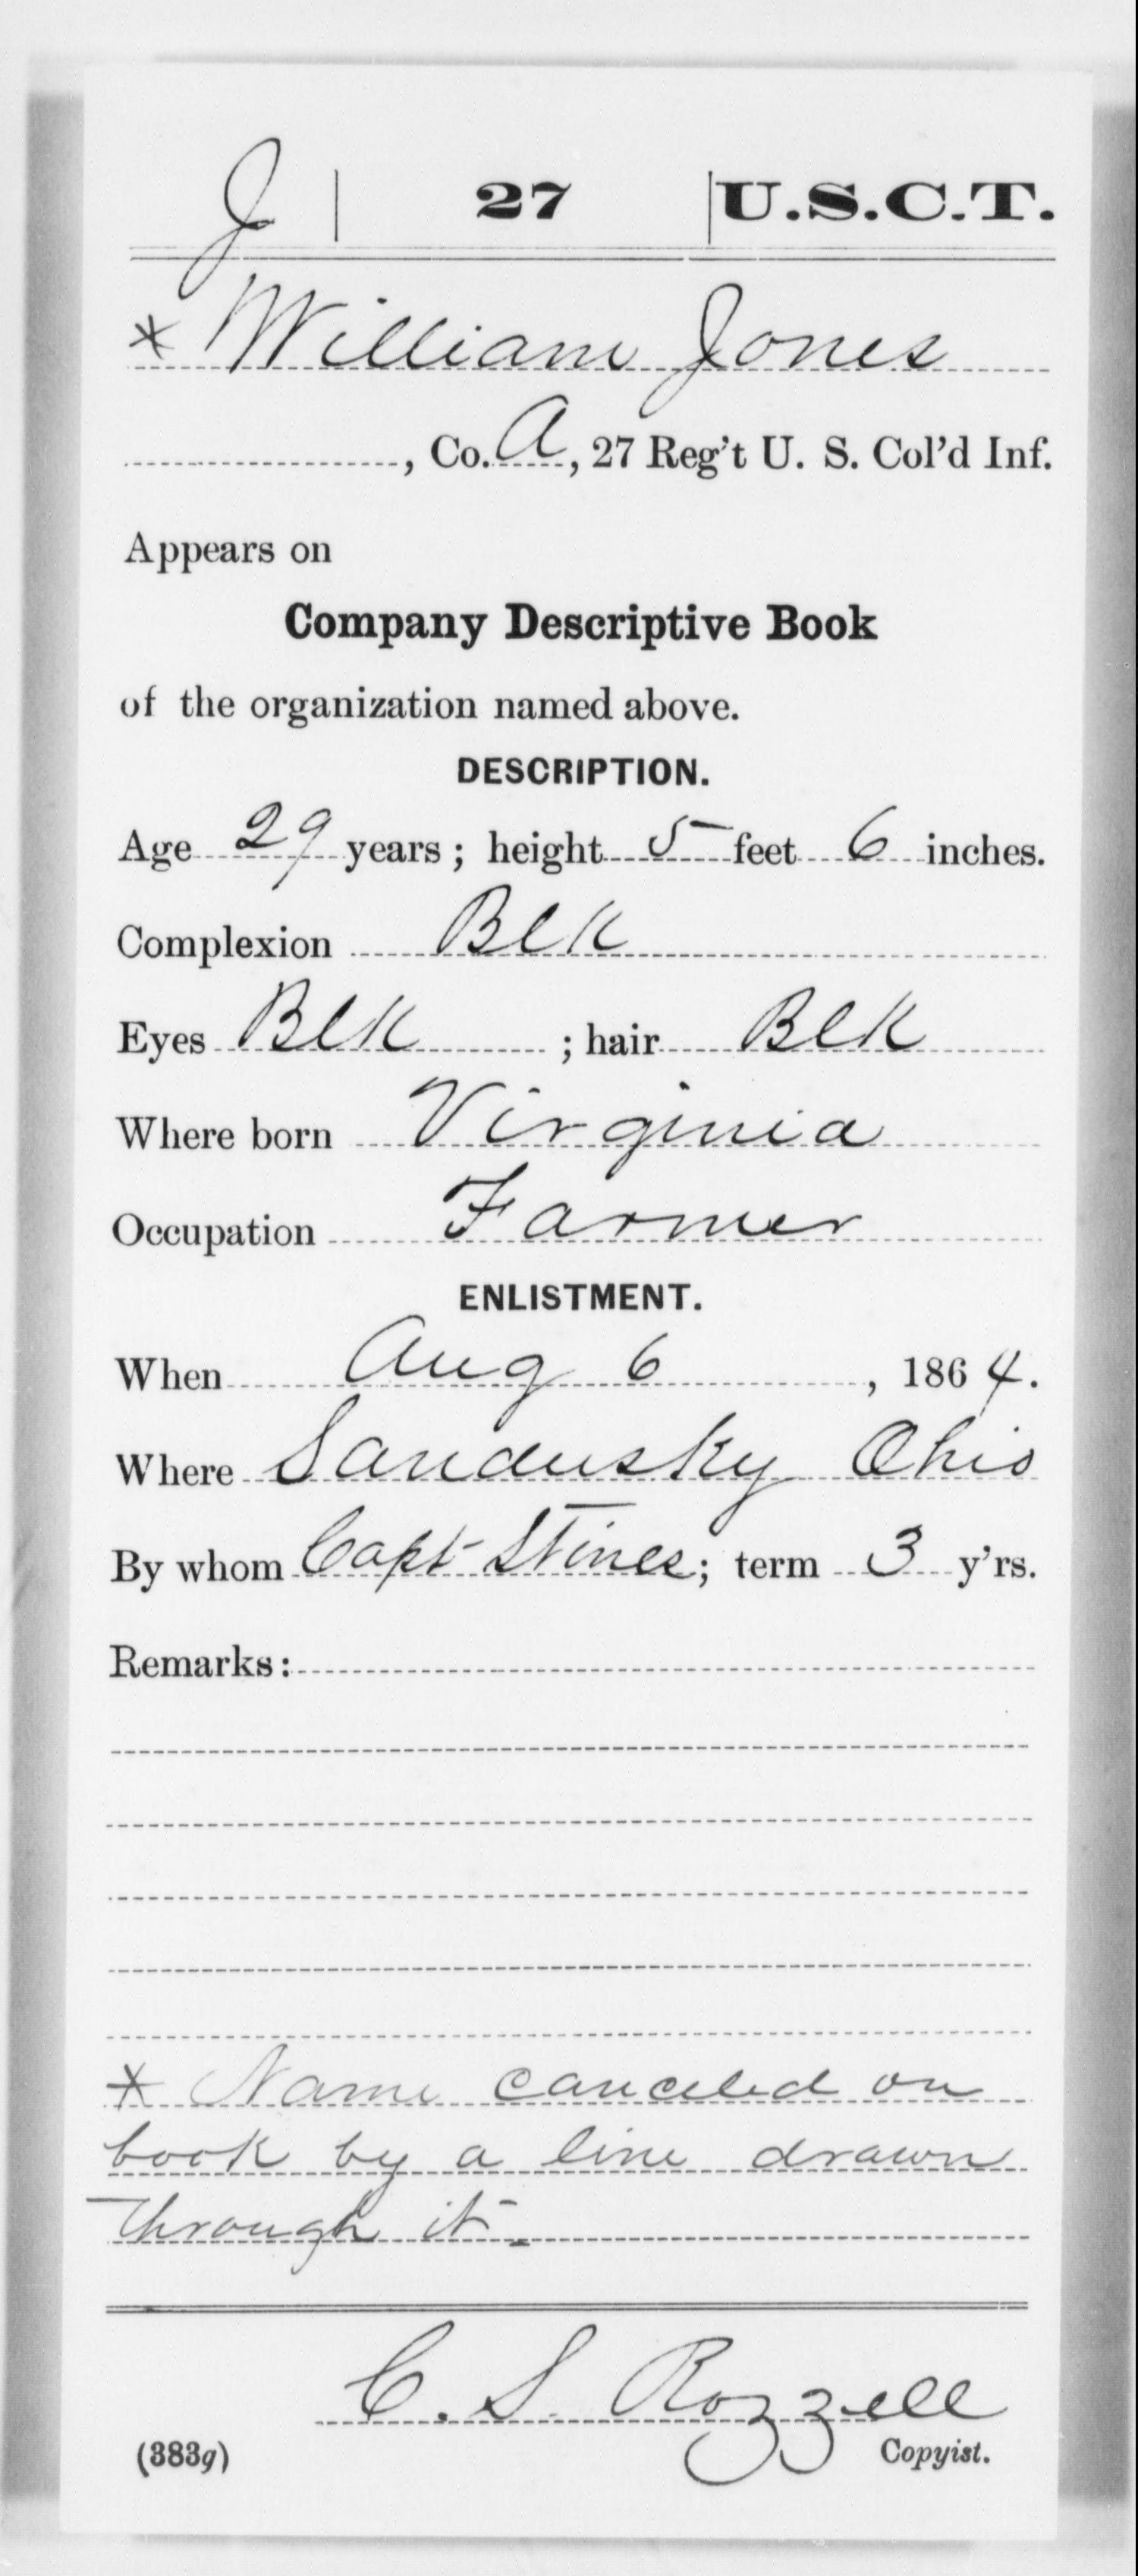 J | 27 | U.S.C.T.
* William Jones
, Co. A, 27 Reg't U. S. Col'd Inf.
Appears on
Company Descriptive Book
of the organization named above.
DESCRIPTION.
Age 29 years; height 5 feet 6 inches.
Complexion Blk
Eyes Blk ; hair Blk
Where born Virginia
Occupation Farmer
ENLISTMENT.
When Aug 6, 1864.
Where Sandusky Ohio
By whom Capt Stines; term 3 y'rs.
Remarks:
* Name canceled on
book by a line drawn
through it.
C. S. Rozzell
(383g) Copyist.